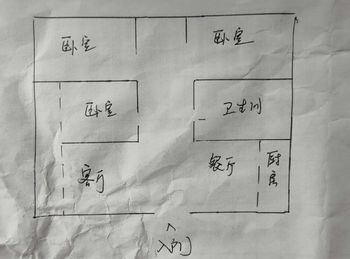 卧室
卧室
卧室
卫生间
客厅
餐厅
厨房
入门